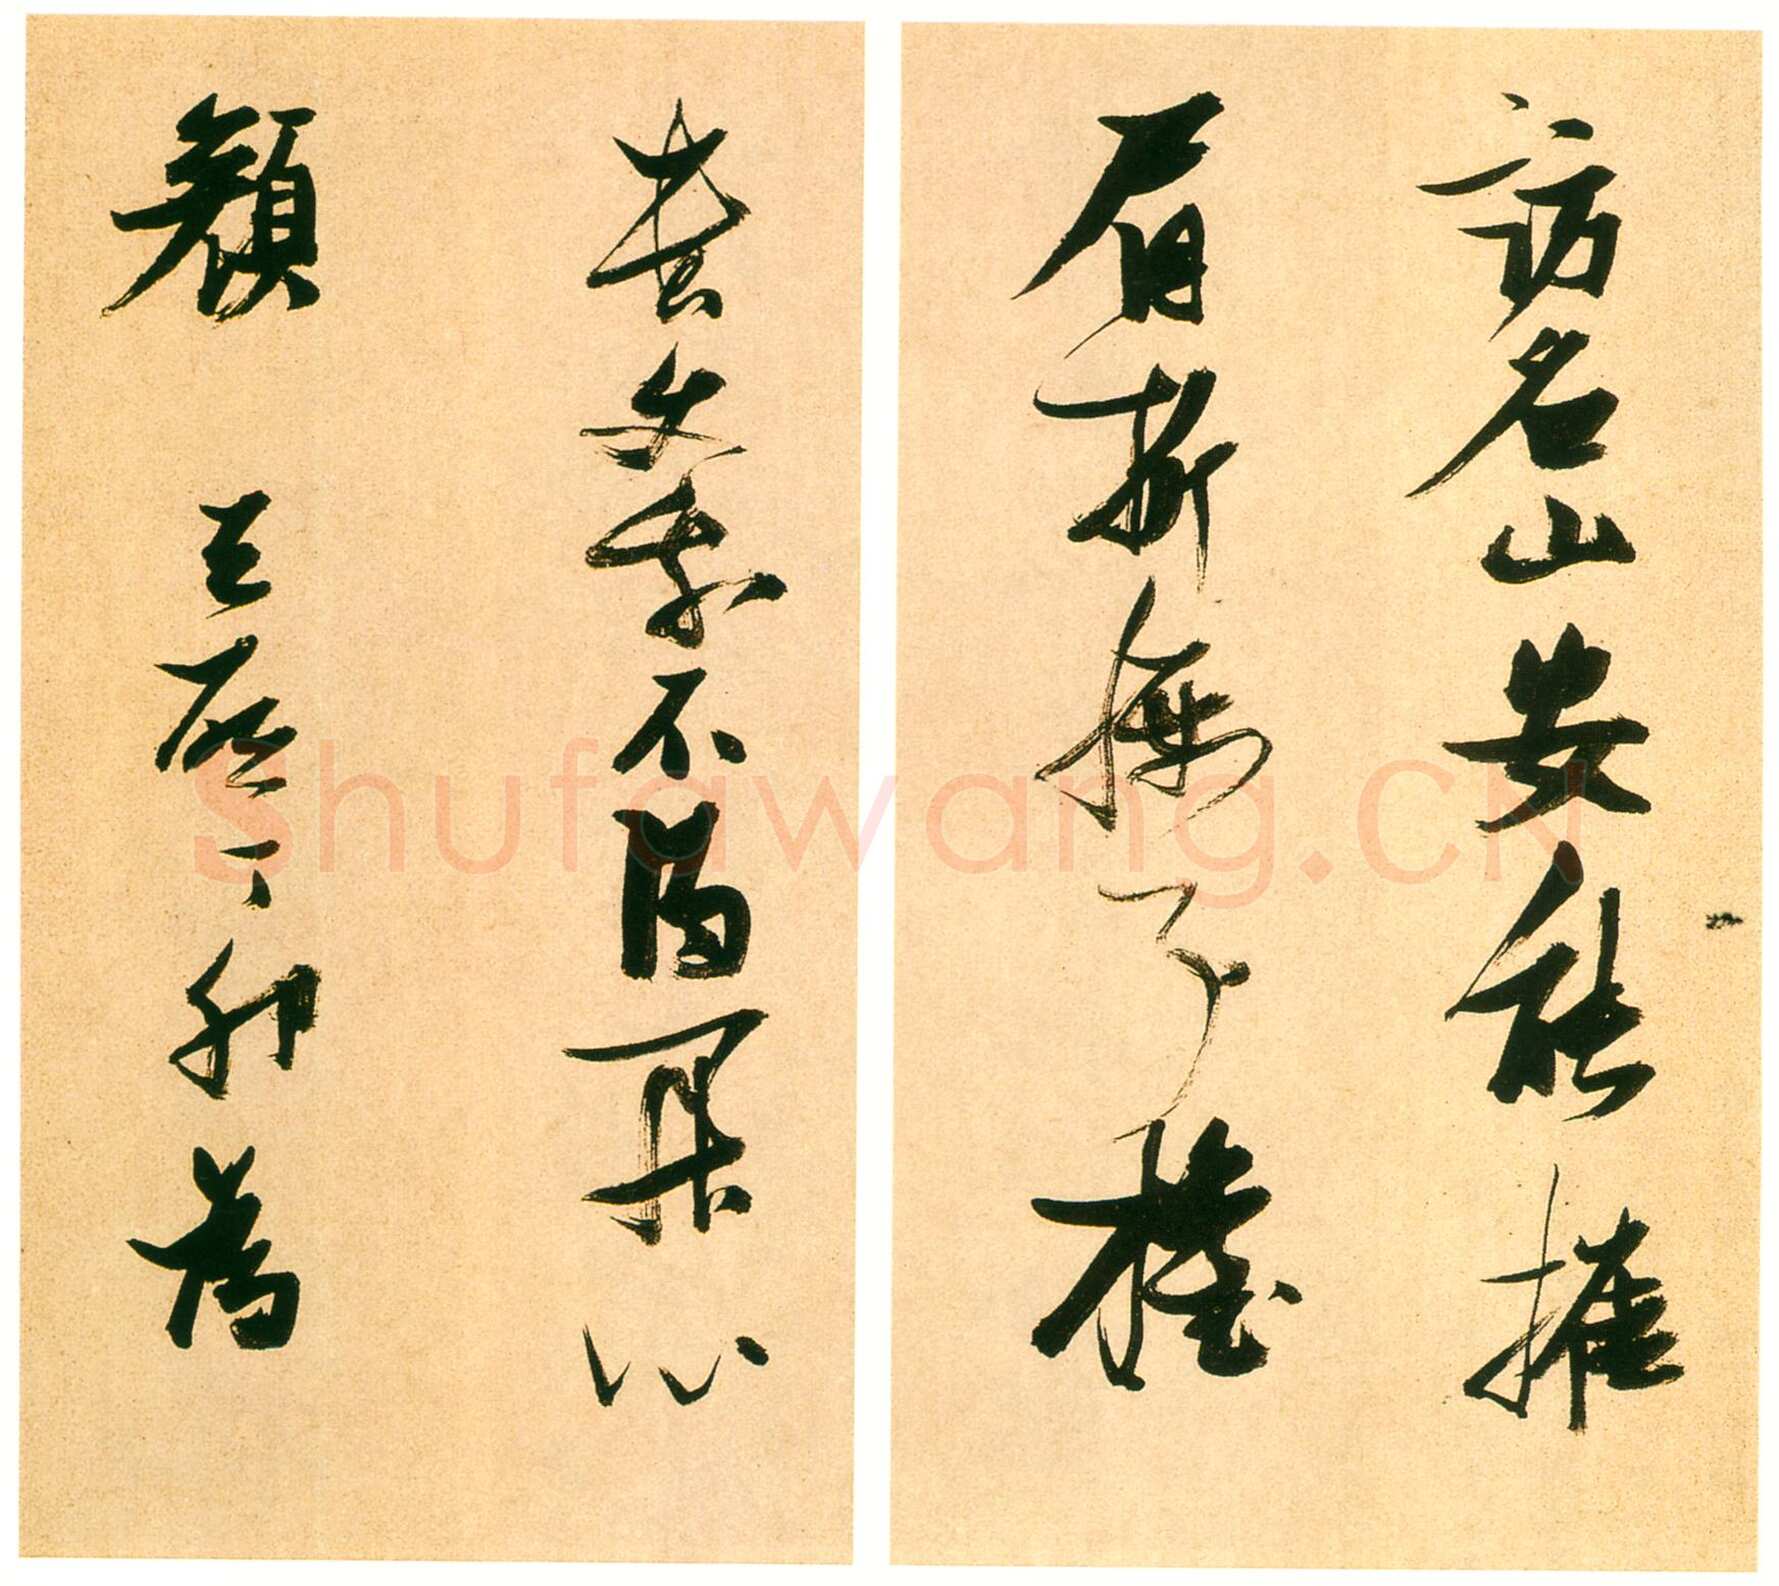 訪名山安能摧
眉折腰事權
貴使我不得開心
顏 天啓丁卯為
Shufawang.CN